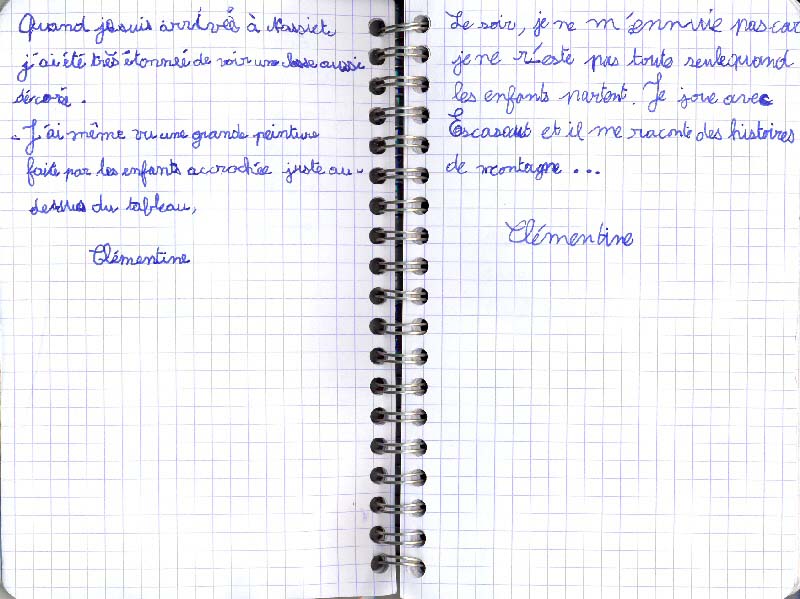 Quand je suis arrivée à Nassiet
j'ai été très étonnée de voir une classe aussi
décoré.
- J'ai même vu une grande peinture
faite par les enfants accrochée juste au-
dessus du tableau,
Clémentine
Le soir, je ne m'ennuie pas car
je ne reste pas toute seule quand
les enfants partent. Je joue avec
Escasaut et il me raconte des histoires
de montagne ...
Clémentine